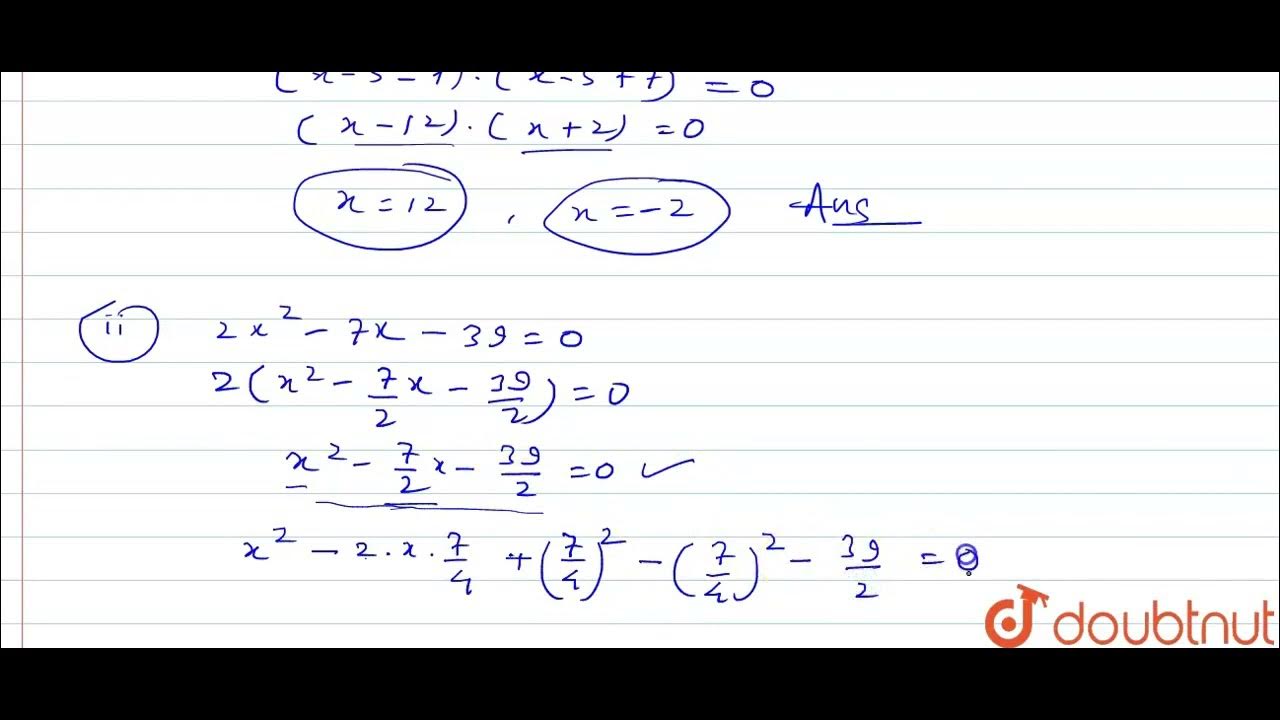 (x-5-7).(x-5+7) = 0
(x-12).(x+2) = 0
x = 12 , x = -2 Ans
ii 2x² - 7x - 39 = 0
2(x² - 7/2 x - 39/2) = 0
x² - 7/2 x - 39/2 = 0 ✓
x² - 2.x.7/4 + (7/4)² - (7/4)² - 39/2 = 0
doubtnut